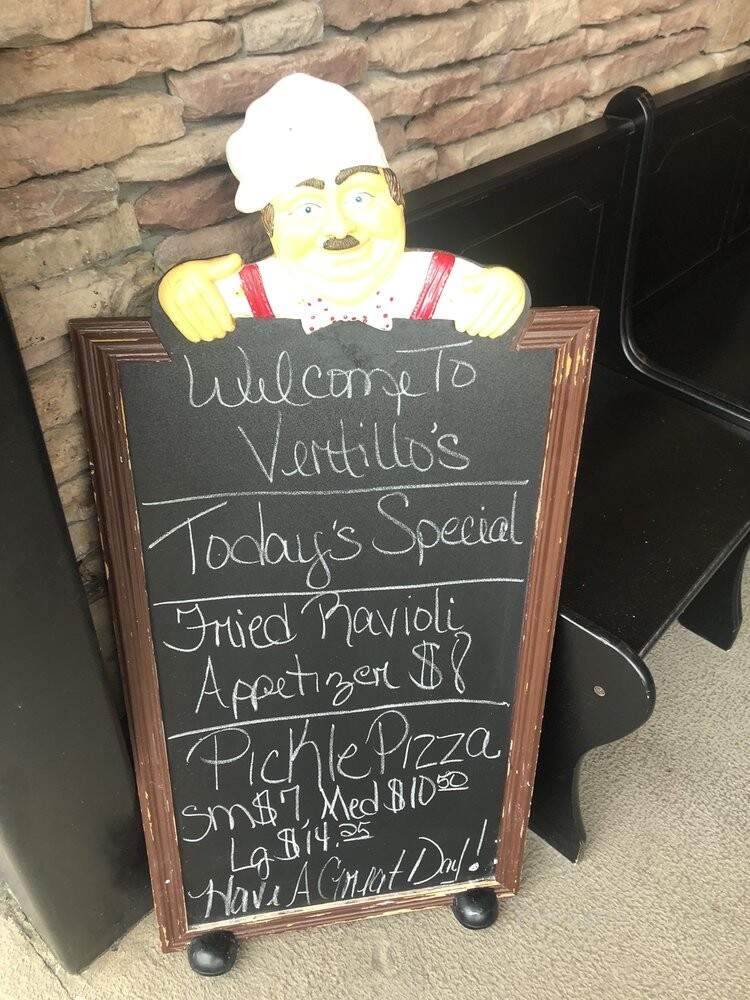 Welcome To
Vertillo's
Today's Special
Fried Ravioli
Appetizer $8
Pickle Pizza
Sm $7, Med $10 50
Lg $14.25
Have A Great Day!